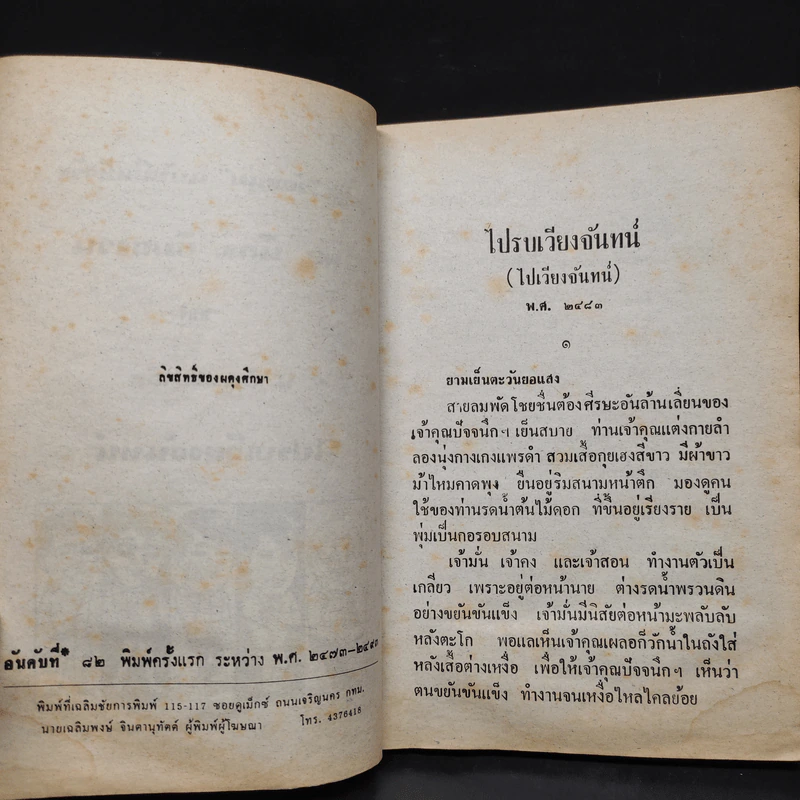 ลิขสิทธิ์ของผดุงศึกษา
อันดับที่ ๘๒ พิมพ์ครั้งแรก ระหว่าง พ.ศ. ๒๔๗๓-๒๔๙๓
พิมพ์ที่เฉลิมชัยการพิมพ์ 115-117 ซอยคูเม็กซ์ ถนนเจริญนคร กทม.
นายเฉลิมพงษ์ จินดานุทัตต์ ผู้พิมพ์ผู้โฆษณา โทร. 4376418
ไปรบเวียงจันทน์
(ไปเวียงจันทน์)
พ.ศ. ๒๔๘๓
๑
ยามเย็นตะวันยอแสง
สายลมพัดโชยชื่นต้องศีรษะอันล้านเลี่ยนของ
เจ้าคุณปัจจนึกฯ เย็นสบาย ท่านเจ้าคุณแต่งกายลำ
ลองนุ่งกางเกงแพรดำ สวมเสื้อกุยเฮงสีขาว มีผ้าขาว
ม้าไหมคาดพุง ยืนอยู่ริมสนามหน้าตึก มองดูคน
ใช้ของท่านรดน้ำต้นไม้ดอก ที่ขึ้นอยู่เรียงราย เป็น
พุ่มเป็นกอรอบสนาม
เจ้ามั่น เจ้าคง และเจ้าสอน ทำงานตัวเป็น
เกลียว เพราะอยู่ต่อหน้านาย ต่างรดน้ำพรวนดิน
อย่างขยันขันแข็ง เจ้ามั่นมีนิสัยต่อหน้ามะพลับลับ
หลังตะโก พอแลเห็นเจ้าคุณเผลอก็วักน้ำในถังใส่
หลังเสื้อต่างเหงื่อ เพื่อให้เจ้าคุณปัจจนึกฯ เห็นว่า
ตนขยันขันแข็ง ทำงานจนเหงื่อไหลไคลย้อย